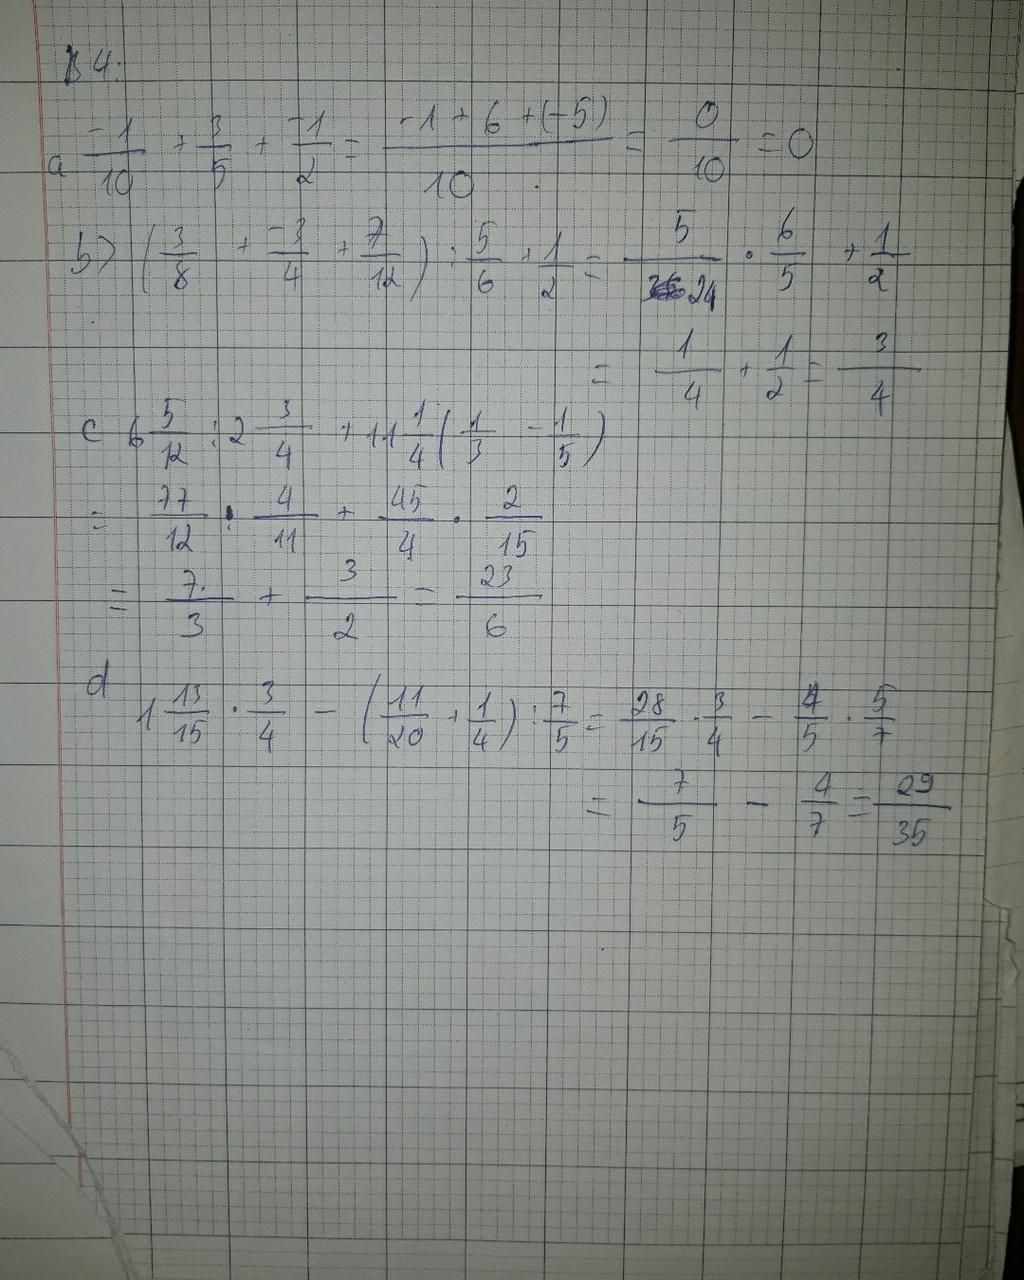 B4:
a -1/10 + 3/5 + -1/2 = -1 + 6 + (-5)/10 = 0/10 = 0
b) (3/8 + -3/4 + 7/12) : 5/6 + 1/2 = 5/24 · 6/5 + 1/2
= 1/4 + 1/2 = 3/4
c 6 5/12 : 2 3/4 + 11 1/4 (1/3 - 1/5)
= 77/12 · 4/11 + 45/4 · 2/15
= 7/3 + 3/2 = 23/6
d 1 13/15 · 3/4 - (11/20 + 1/4) : 7/5 = 28/15 · 3/4 - 4/5 · 5/7
= 7/5 - 4/7 = 29/35